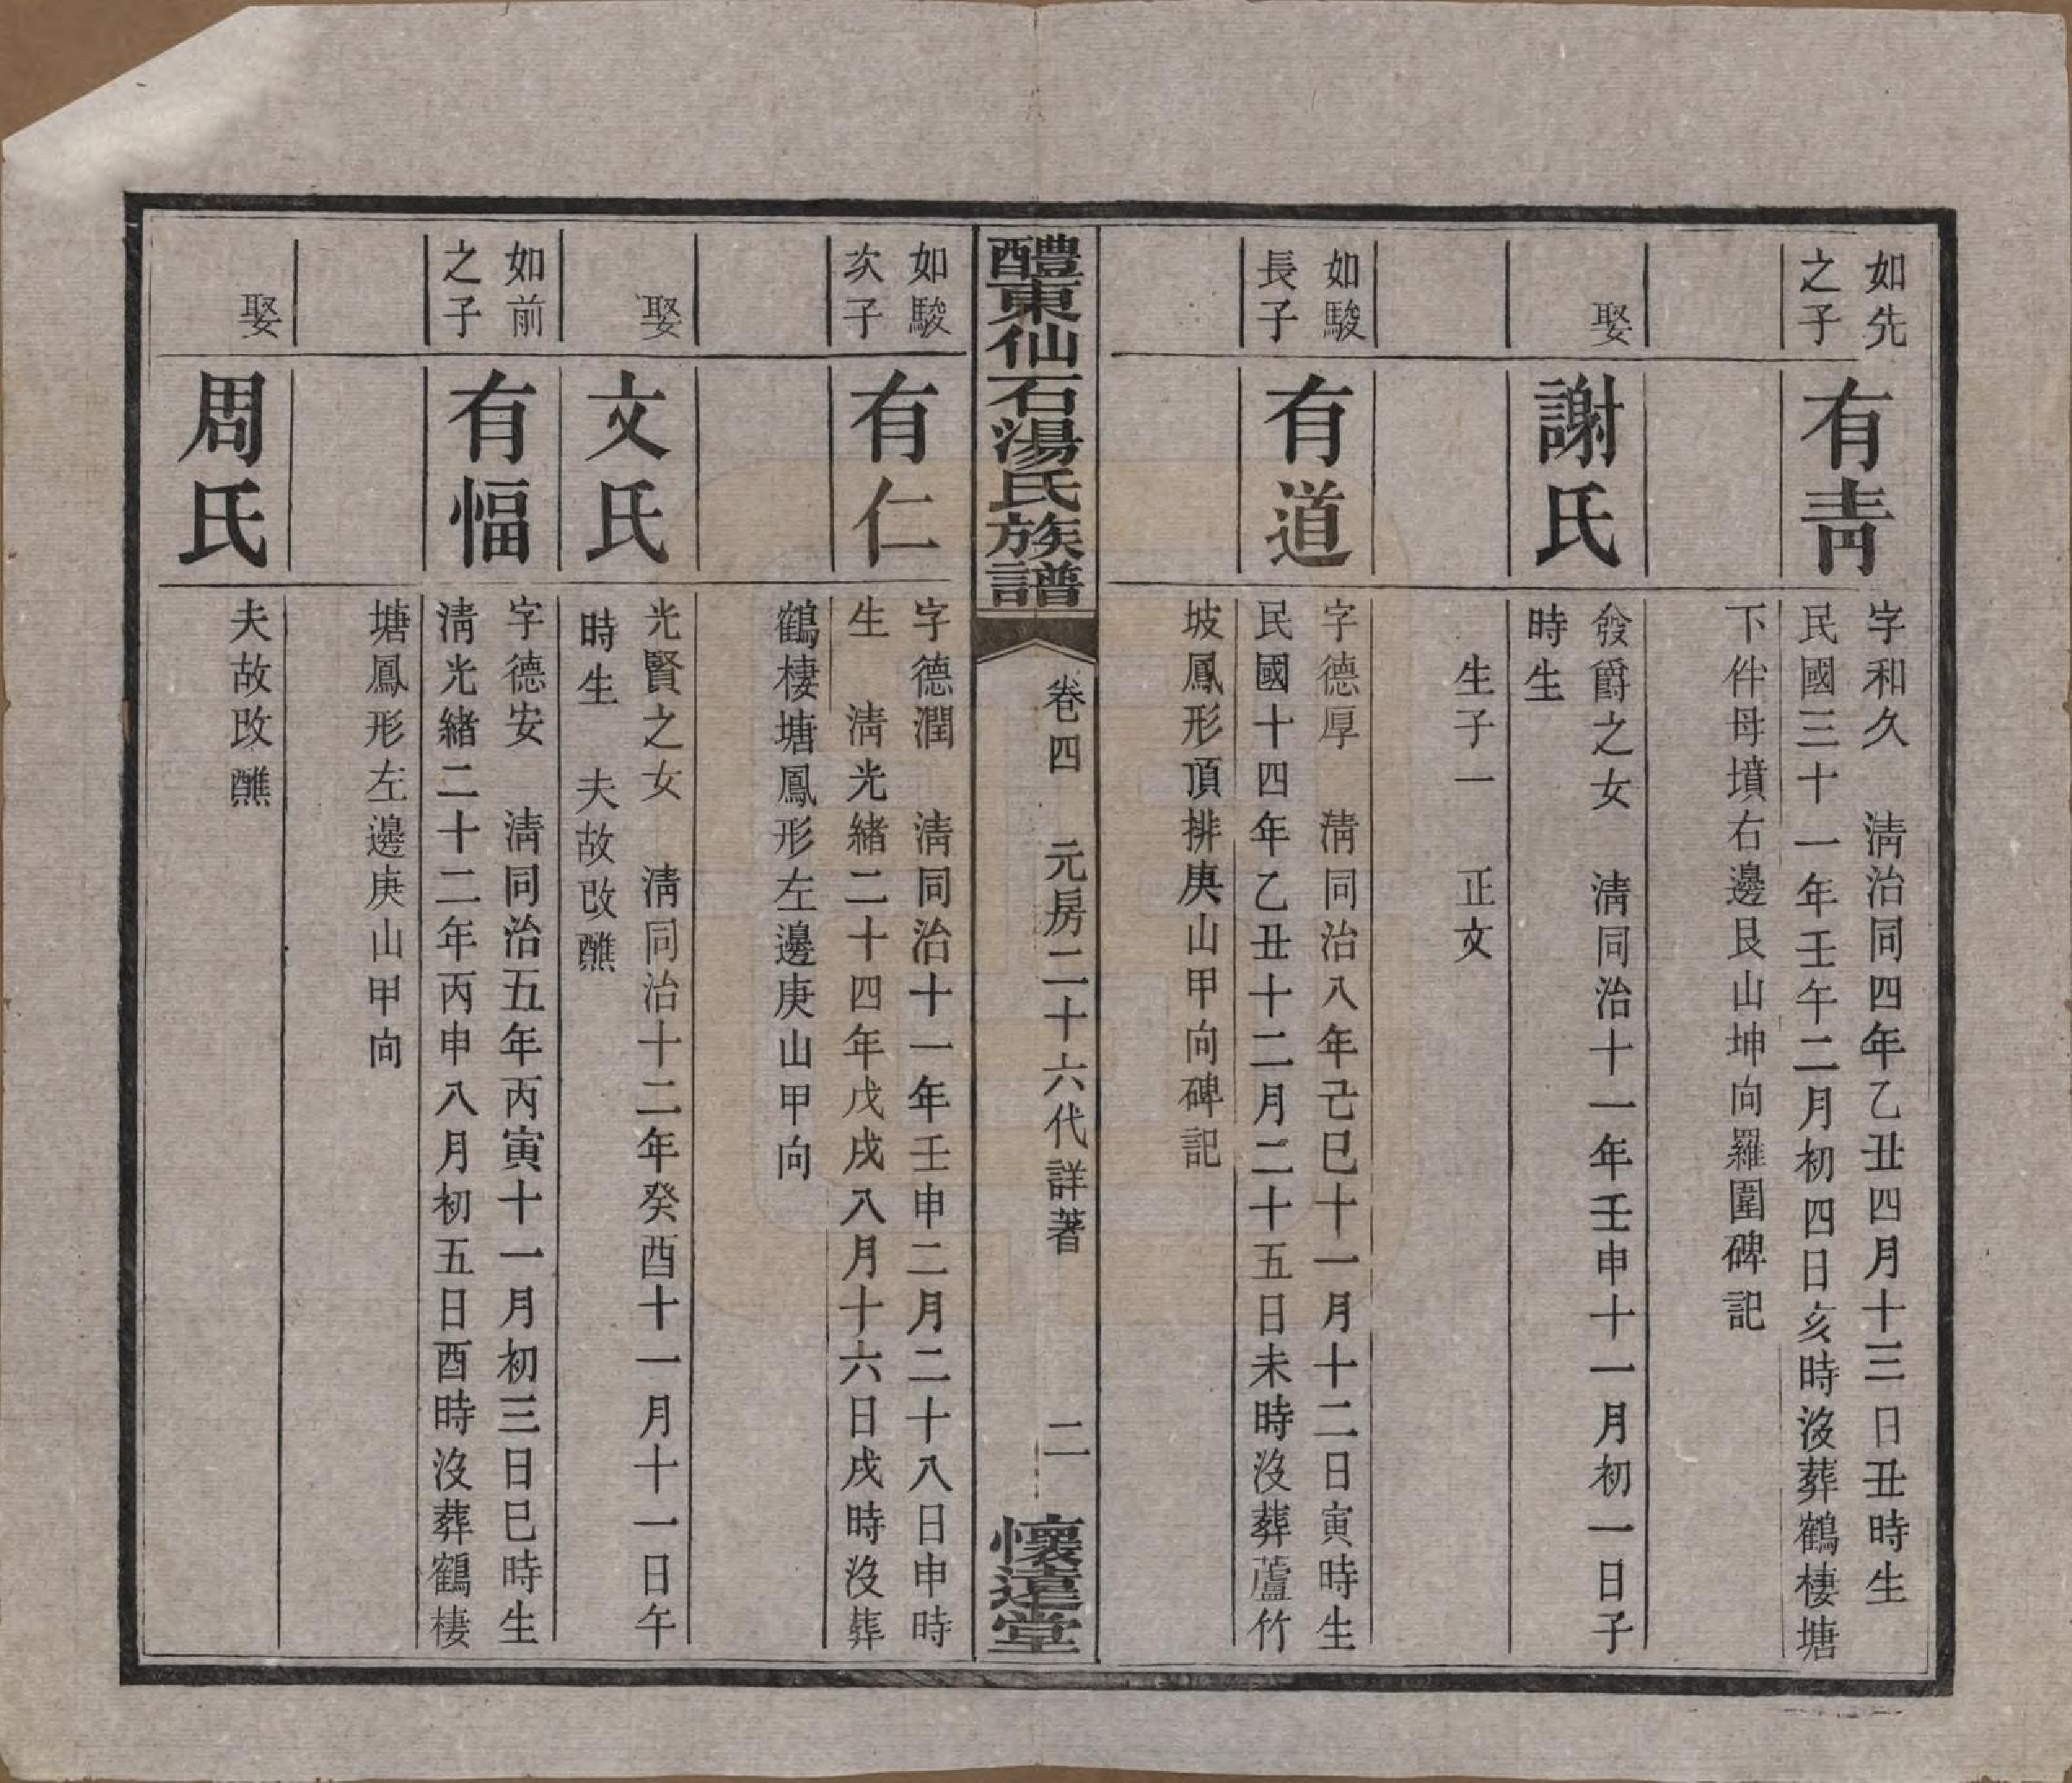 如先
之子
有青
字和久　清治同四年乙丑四月十三日丑時生
民國三十一年壬午二月初四日亥時沒葬鶴棲塘
下伴母墳右邊艮山坤向羅圍碑記
娶
謝氏
發爵之女　清同治十一年壬申十一月初一日子
時生
生子一　正文
如駿
長子
有道
字德厚　清同治八年己巳十一月十二日寅時生
民國十四年乙丑十二月二十五日未時沒葬蘆竹
坡鳳形頂排庚山甲向碑記
醴東仙石湯氏族譜
卷四　元房二十六代詳著
二
懷遠堂
如駿
次子
有仁
字德潤　清同治十一年壬申二月二十八日申時
生　清光緒二十四年戊戌八月十六日戌時沒葬
鶴棲塘鳳形左邊庚山甲向
娶
文氏
光賢之女　清同治十二年癸酉十一月十一日午
時生　夫故改醮
如前
之子
有愊
字德安　清同治五年丙寅十一月初三日巳時生
清光緒二十二年丙申八月初五日酉時沒葬鶴棲
塘鳳形左邊庚山甲向
娶
周氏
夫故改醮